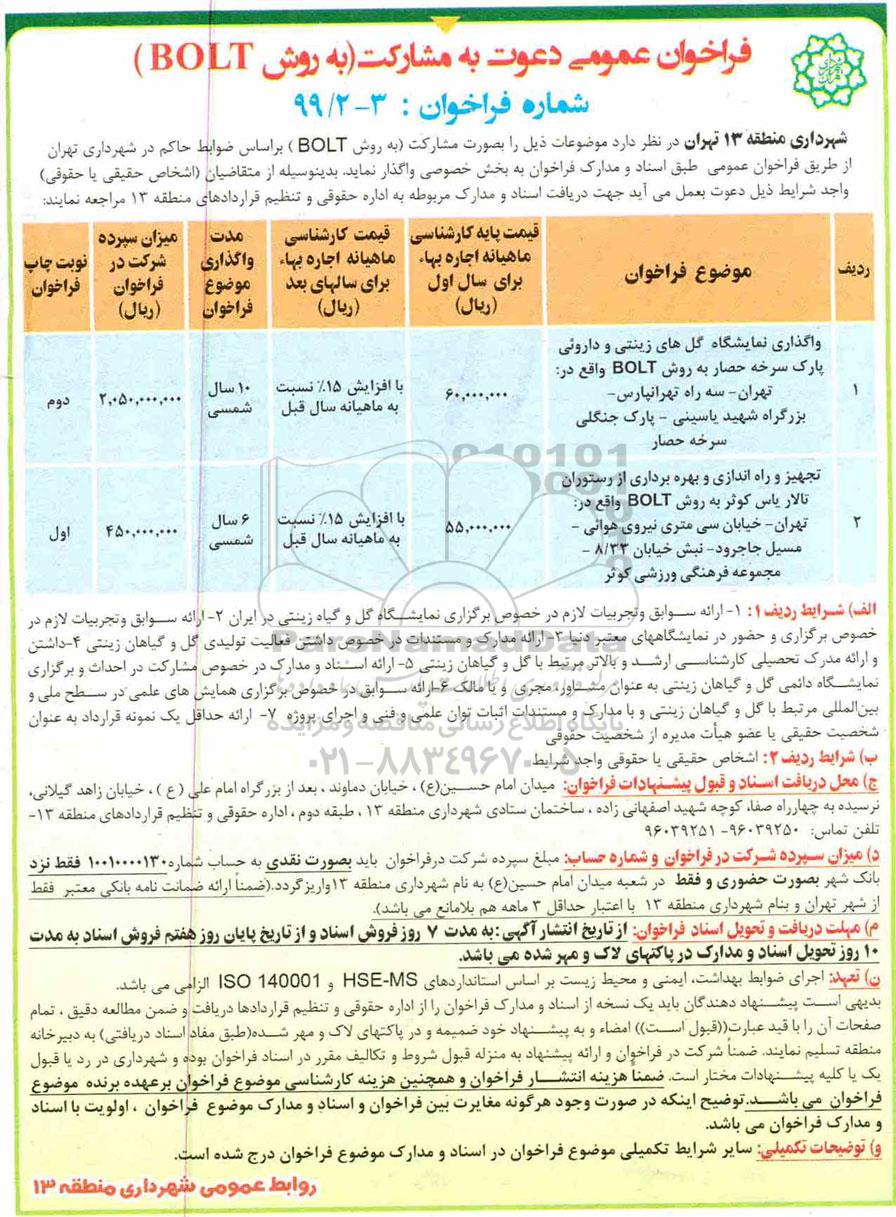 فراخوان عمومی دعوت به مشارکت (به روش BOLT)
شماره فراخوان : ۳-۹۹/۲
شهرداری منطقه ۱۳ تهران در نظر دارد موضوعات ذیل را بصورت مشارکت (به روش BOLT ) براساس ضوابط حاکم در شهرداری تهران
از طریق فراخوان عمومی طبق اسناد و مدارک فراخوان به بخش خصوصی واگذار نماید. بدینوسیله از متقاضیان (اشخاص حقیقی یا حقوقی)
واجد شرایط ذیل دعوت بعمل می آید جهت دریافت اسناد و مدارک مربوطه به اداره حقوقی و تنظیم قراردادهای منطقه ۱۳ مراجعه نمایند:
ردیف
موضوع فراخوان
قیمت پایه کارشناسی
ماهیانه اجاره بهاء
برای سال اول
(ریال)
قیمت کارشناسی
ماهیانه اجاره بهاء
برای سالهای بعد
(ریال)
مدت
واگذاری
موضوع
فراخوان
میزان سپرده
شرکت در
فراخوان
(ریال)
نوبت چاپ
فراخوان
۱
واگذاری نمایشگاه گل های زینتی و داروئی
پارک سرخه حصار به روش BOLT واقع در:
تهران- سه راه تهرانپارس-
بزرگراه شهید یاسینی - پارک جنگلی
سرخه حصار
۶۰,۰۰۰,۰۰۰
با افزایش ۱۵٪ نسبت
به ماهیانه سال قبل
۱۰ سال
شمسی
۲,۰۵۰,۰۰۰,۰۰۰
دوم
۲
تجهیز و راه اندازی و بهره برداری از رستوران
تالار یاس کوثر به روش BOLT واقع در:
تهران- خیابان سی متری نیروی هوائی -
مسیل جاجرود- نبش خیابان ۸/۳۳ -
مجموعه فرهنگی ورزشی کوثر
۵۵,۰۰۰,۰۰۰
با افزایش ۱۵٪ نسبت
به ماهیانه سال قبل
۶ سال
شمسی
۴۵۰,۰۰۰,۰۰۰
اول
الف) شرایط ردیف ۱: ۱- ارائه سوابق وتجربیات لازم در خصوص برگزاری نمایشگاه گل و گیاه زینتی در ایران ۲- ارائه سوابق وتجربیات لازم در
خصوص برگزاری و حضور در نمایشگاههای معتبر دنیا ۳- ارائه مدارک و مستندات در خصوص داشتن فعالیت تولیدی گل و گیاهان زینتی ۴-داشتن
و ارائه مدرک تحصیلی کارشناسی ارشد و بالاتر مرتبط با گل و گیاهان زینتی ۵- ارائه اسناد و مدارک در خصوص مشارکت در احداث و برگزاری
نمایشگاه دائمی گل و گیاهان زینتی به عنوان مشاور، مجری و یا مالک ۶-ارائه سوابق در خصوص برگزاری همایش های علمی در سطح ملی و
بین‌المللی مرتبط با گل و گیاهان زینتی و با مدارک و مستندات اثبات توان علمی و فنی و اجرای پروژه ۷- ارائه حداقل یک نمونه قرارداد به عنوان
شخصیت حقیقی یا عضو هیأت مدیره از شخصیت حقوقی
ب) شرایط ردیف ۲: اشخاص حقیقی یا حقوقی واجد شرایط
ج) محل دریافت اسناد و قبول پیشنهادات فراخوان: میدان امام حسین(ع) ، خیابان دماوند ، بعد از بزرگراه امام علی ( ع ) ، خیابان زاهد گیلانی،
نرسیده به چهارراه صفا، کوچه شهید اصفهانی زاده ، ساختمان ستادی شهرداری منطقه ۱۳ ، طبقه دوم ، اداره حقوقی و تنظیم قراردادهای منطقه ۱۳-
تلفن تماس: ۹۶۰۳۹۲۵۰- ۹۶۰۳۹۲۵۱
د) میزان سپرده شرکت در فراخوان و شماره حساب: مبلغ سپرده شرکت درفراخوان باید بصورت نقدی به حساب شماره ۱۰۰۱۰۰۰۰۱۳۰ فقط نزد
بانک شهر بصورت حضوری و فقط در شعبه میدان امام حسین(ع) به نام شهرداری منطقه ۱۳واریزگردد.(ضمنا ارائه ضمانت نامه بانکی معتبر فقط
از شهر تهران و بنام شهرداری منطقه ۱۳ با اعتبار حداقل ۳ ماهه هم بلامانع می باشد).
م) مهلت دریافت و تحویل اسناد فراخوان: از تاریخ انتشار آگهی :به مدت ۷ روز فروش اسناد و از تاریخ پایان روز هفتم فروش اسناد به مدت
۱۰ روز تحویل اسناد و مدارک در پاکتهای لاک و مهر شده می باشد.
ن) تعهد: اجرای ضوابط بهداشت، ایمنی و محیط زیست بر اساس استانداردهای HSE-MS و ISO 140001 الزامی می باشد.
بدیهی است پیشنهاد دهندگان باید یک نسخه از اسناد و مدارک فراخوان را از اداره حقوقی و تنظیم قراردادها دریافت و ضمن مطالعه دقیق ، تمام
صفحات آن را با قید عبارت((قبول است)) امضاء و به پیشنهاد خود ضمیمه و در پاکتهای لاک و مهر شده(طبق مفاد اسناد دریافتی) به دبیرخانه
منطقه تسلیم نمایند. ضمناً شرکت در فراخوان و ارائه پیشنهاد به منزله قبول شروط و تکالیف مقرر در اسناد فراخوان بوده و شهرداری در رد یا قبول
یک یا کلیه پیشنهادات مختار است. ضمناً هزینه انتشار فراخوان و همچنین هزینه کارشناسی موضوع فراخوان برعهده برنده موضوع
فراخوان می باشد. توضیح اینکه در صورت وجود هرگونه مغایرت بین فراخوان و اسناد و مدارک موضوع فراخوان ، اولویت با اسناد
و مدارک فراخوان می باشد.
و) توضیحات تکمیلی: سایر شرایط تکمیلی موضوع فراخوان در اسناد و مدارک موضوع فراخوان درج شده است.
روابط عمومی شهرداری منطقه ۱۳
ParsNamadData
پایگاه اطلاع رسانی مناقصه و مزایده
۰۲۱-۸۸۳۴۹۶۷۰-۵